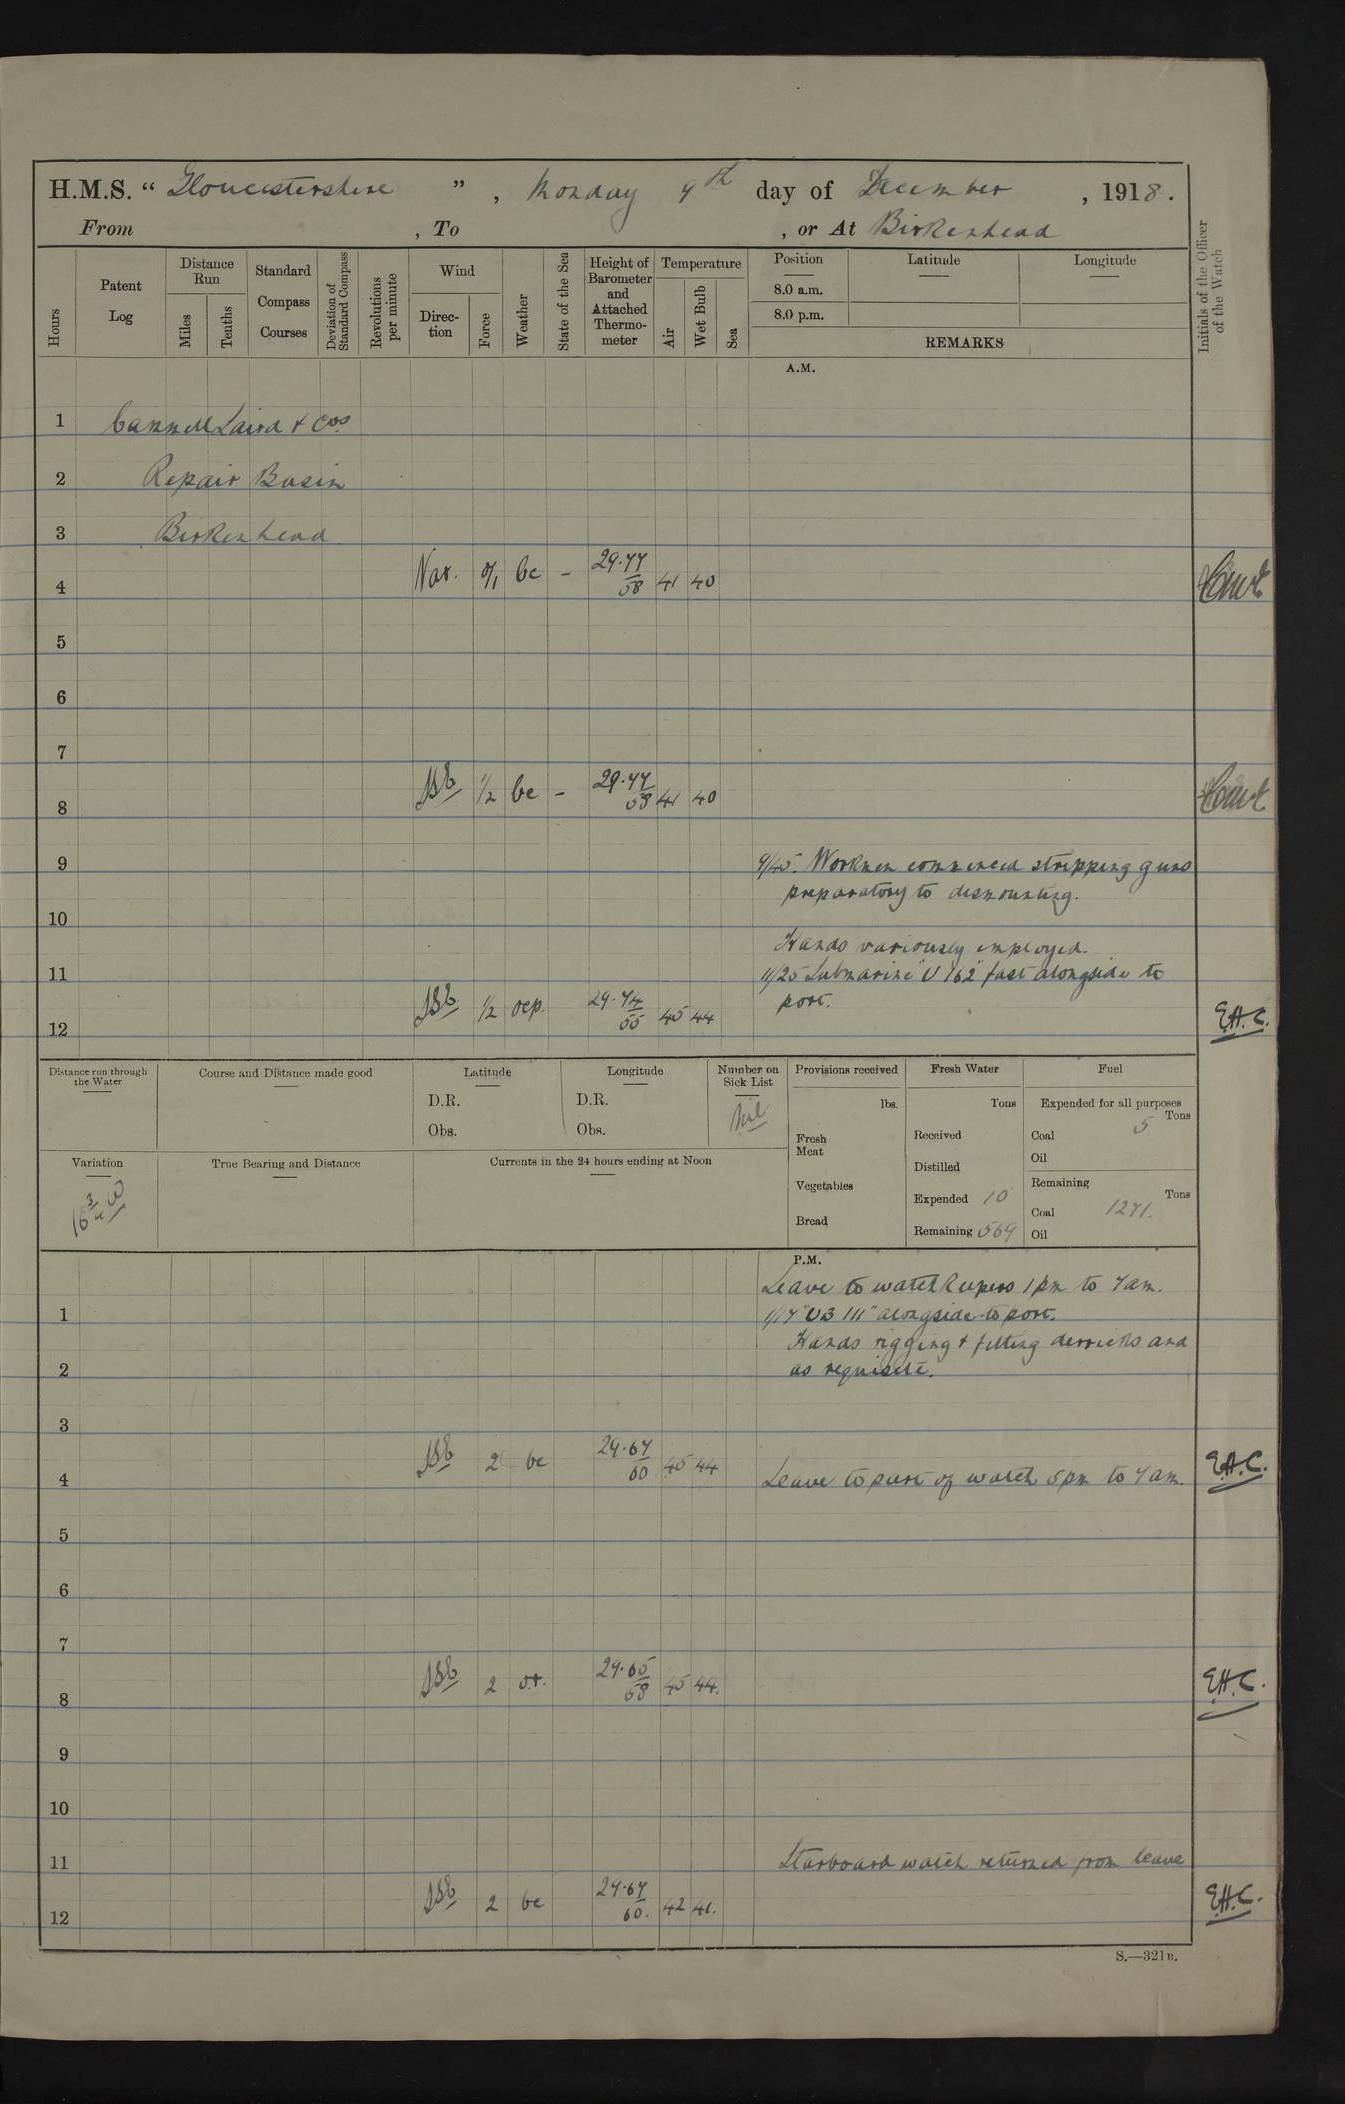 H.M.S. “ Gloucestershire ” , Monday 9th day of December , 1918.
From , To , or At Birkenhead
Hours
Patent Log
Distance Run
Miles
Tenths
Standard Compass Courses
Deviation of Standard Compass
Revolutions per minute
Wind
Direction
Force
Weather
State of the Sea
Height of Barometer and Attached Thermometer
Temperature
Air
Wet Bulb
Sea
Position
8.0 a.m.
8.0 p.m.
Latitude
Longitude
REMARKS
Initials of the Officer of the Watch
A.M.
1 Cammell Laird & Cos
2 Repair Basin
3 Birkenhead
4 Var. 0/1 bc - 29.77 58 41 40
5
6
7
8 1/2 bc - 29.77 58 41 40
9 9/45. Workmen commenced stripping guns
preparatory to dismounting.
10
Hands variously employed.
11 11/25 Submarine "U 162" fast alongside to
port.
12 1/2 29.74 55 45 44 E.H.C.
Distance run through the Water
Course and Distance made good
Latitude
D.R.
Obs.
Longitude
D.R.
Obs.
Number on Sick List
Nil
Provisions received
lbs.
Fresh Meat
Vegetables
Bread
Fresh Water
Tons
Received
Distilled
Expended 10
Remaining 569
Fuel
Expended for all purposes
Tons
Coal 5
Oil
Remaining
Tons
Coal 1271.
Oil
Variation
16 3/4 W
True Bearing and Distance
Currents in the 24 hours ending at Noon
P.M.
Leave to watch Keepers 1 pm to 7 am.
1 1/17 "UB 111" alongside to port.
Hands rigging & fitting derricks and
2 as requisite.
3
4 2 bc 29.67 60 45 44 Leave to part of watch 5 pm to 7 am. E.H.C.
5
6
7
8 2 o.r. 29.65 58 45 44. E.H.C.
9
10
11 Starboard watch returned from leave
12 2 bc 29.67 60. 42 41. E.H.C.
S.—321B.